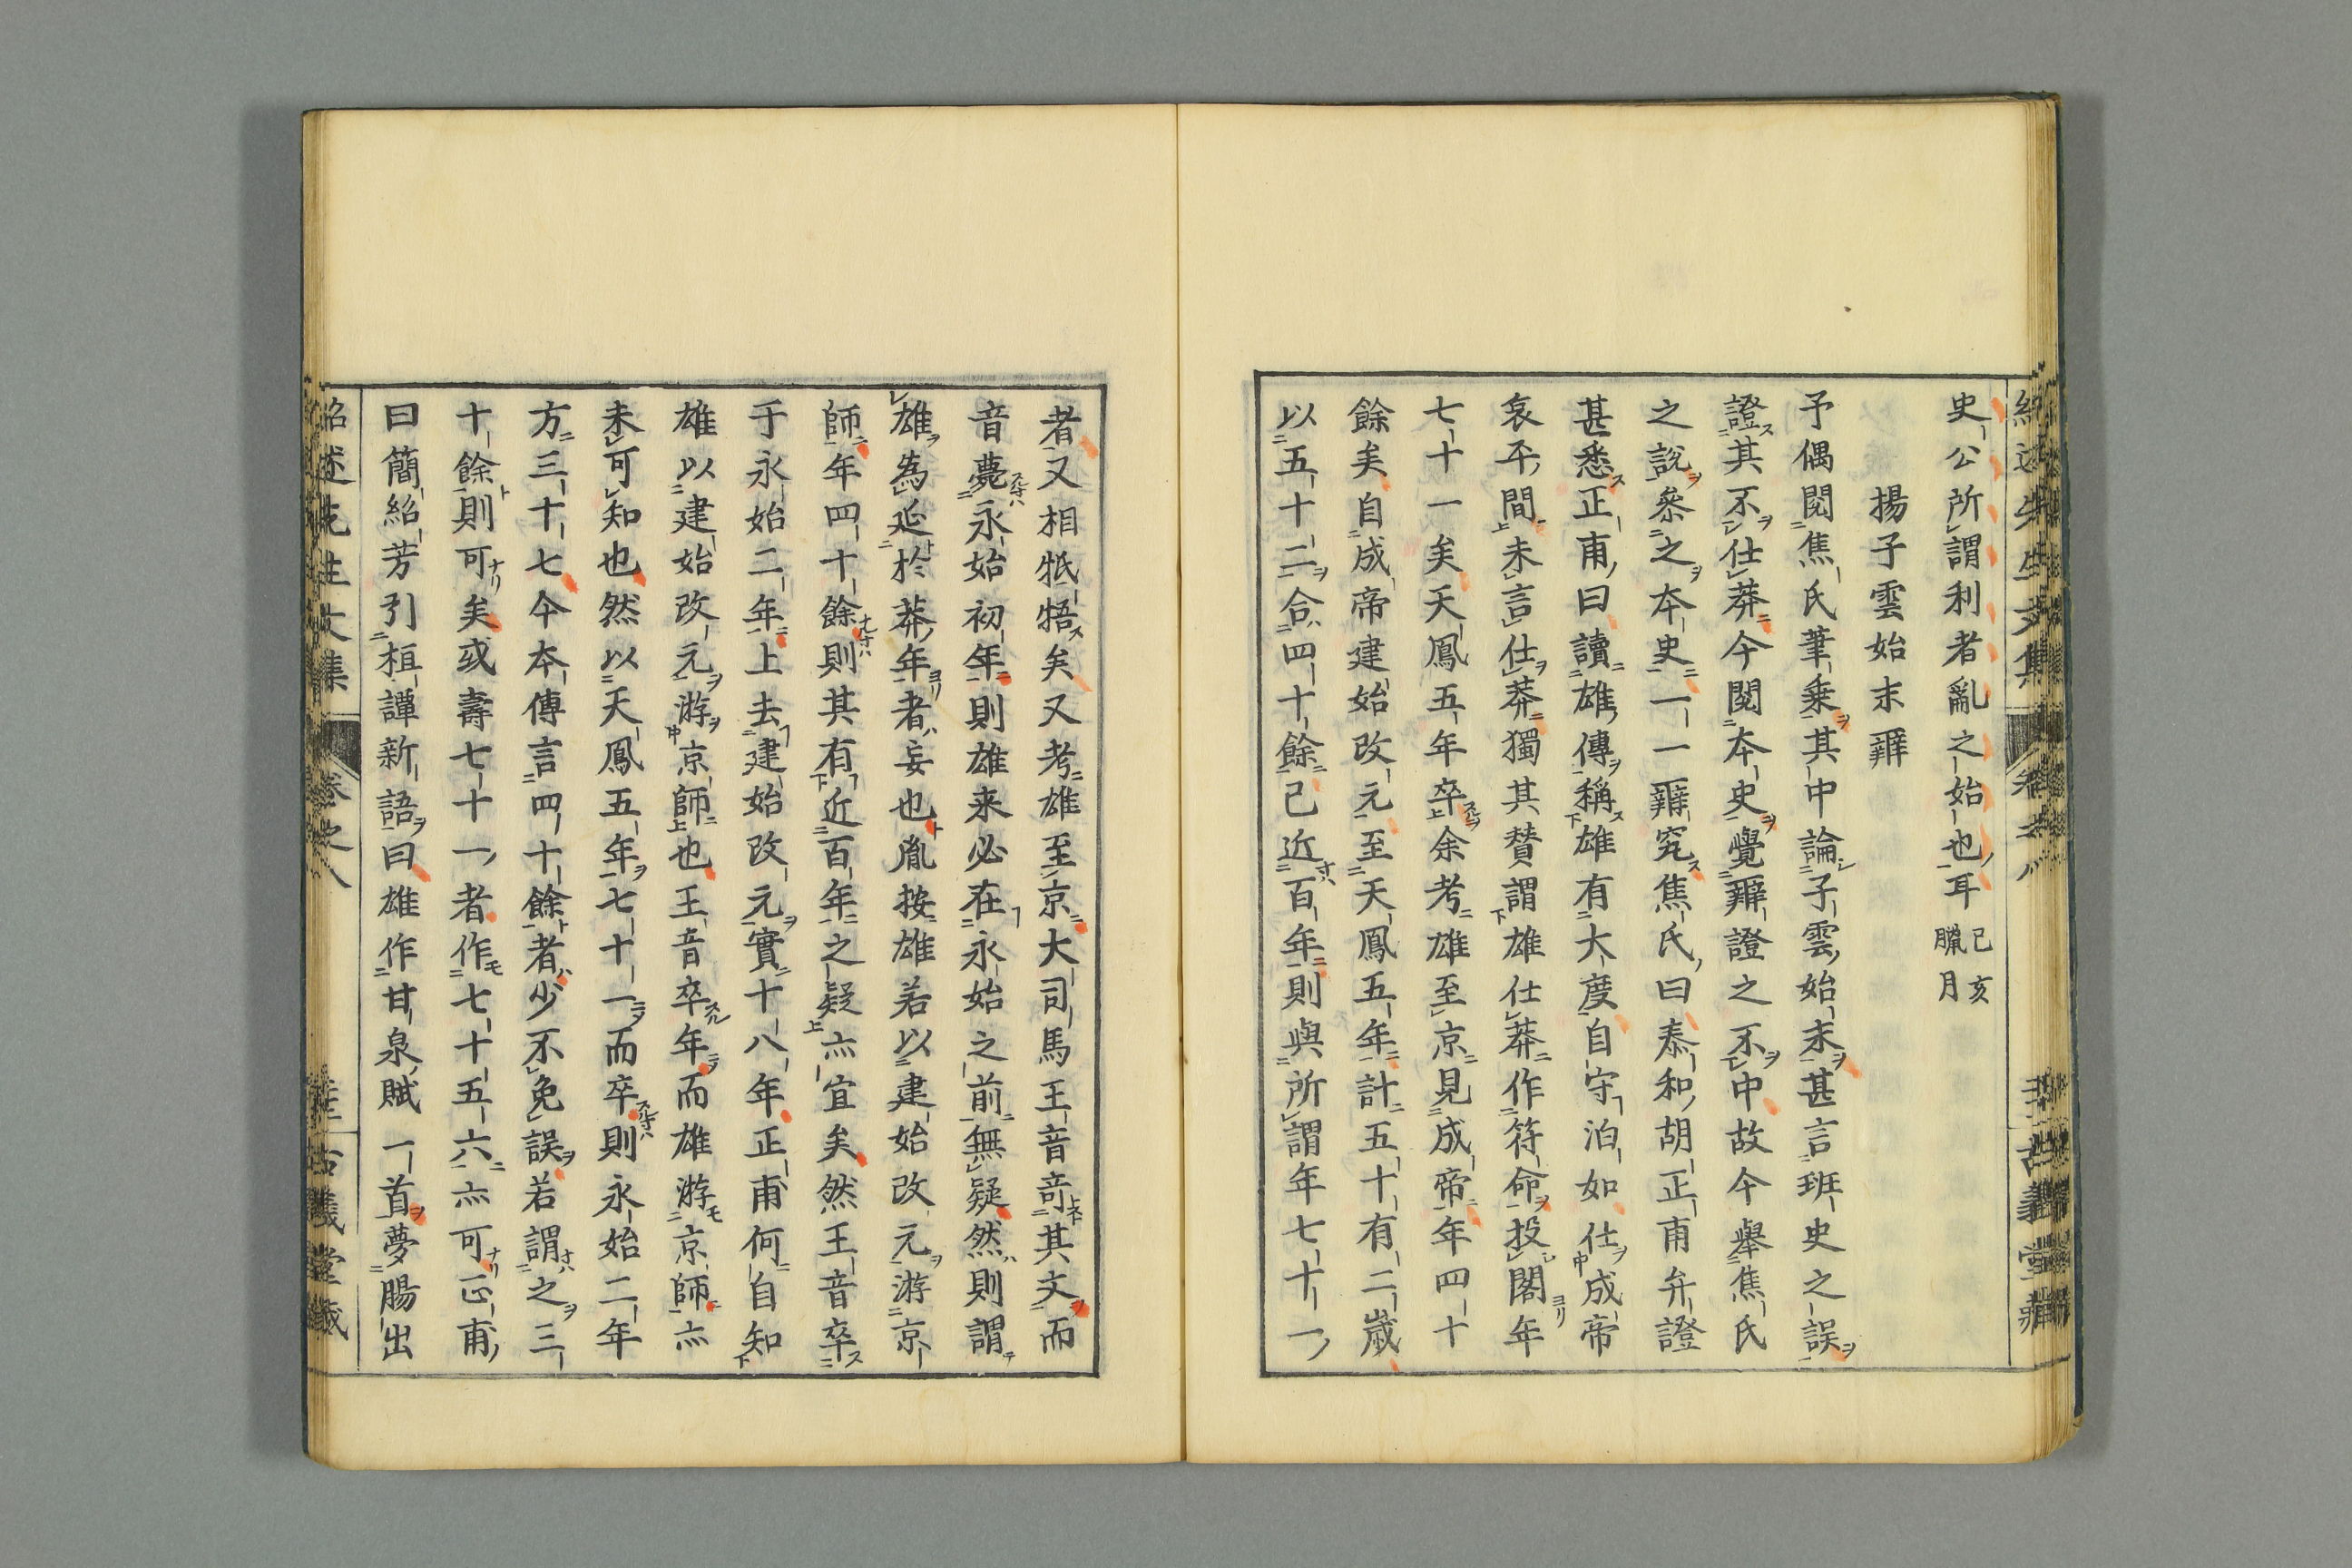 史公所謂利者亂之始也耳己亥臘月
揚子雲始末辨
予偶閱焦氏筆乗其中論子雲始末甚言班史之誤
證其不仕莽今閱本史覺辨證之不中故今舉焦氏
之說叅之本史一一辨究焦氏曰泰和胡正甫弁證
甚悉正甫曰讀雄傳稱雄有大度自守泊如仕成帝
哀平間未言仕莽獨其賛謂雄仕莽作符命投閣年
七十一矣天鳳五年卒余考雄至京見成帝年四十
餘矣自成帝建始改元至天鳳五年計五十有二歲
以五十二合四十餘已近百年則與所謂年七十一
者又相牴牾矣又考雄至京大司馬王音竒其文而
音薨永始初年則雄来必在永始之前無疑然則謂
雄為延於莽年者妄也胤按雄若以建始改元游京
師年四十餘則其有近百年之疑亦宜矣然王音卒
于永始二年上去建始改元實十八年正甫何自知
雄以建始改元游京師也王音卒年而雄游京師亦
未可知也然以天鳳五年七十一而卒則永始二年
方三十七今本傳言四十餘者少不免誤若謂之三
十餘則可矣或壽七十一者作七十五六亦可正甫
曰簡紹芳引桓譚新語曰雄作甘泉賦一首夢腸出
紹述先生文集
卷之八
古義堂藏